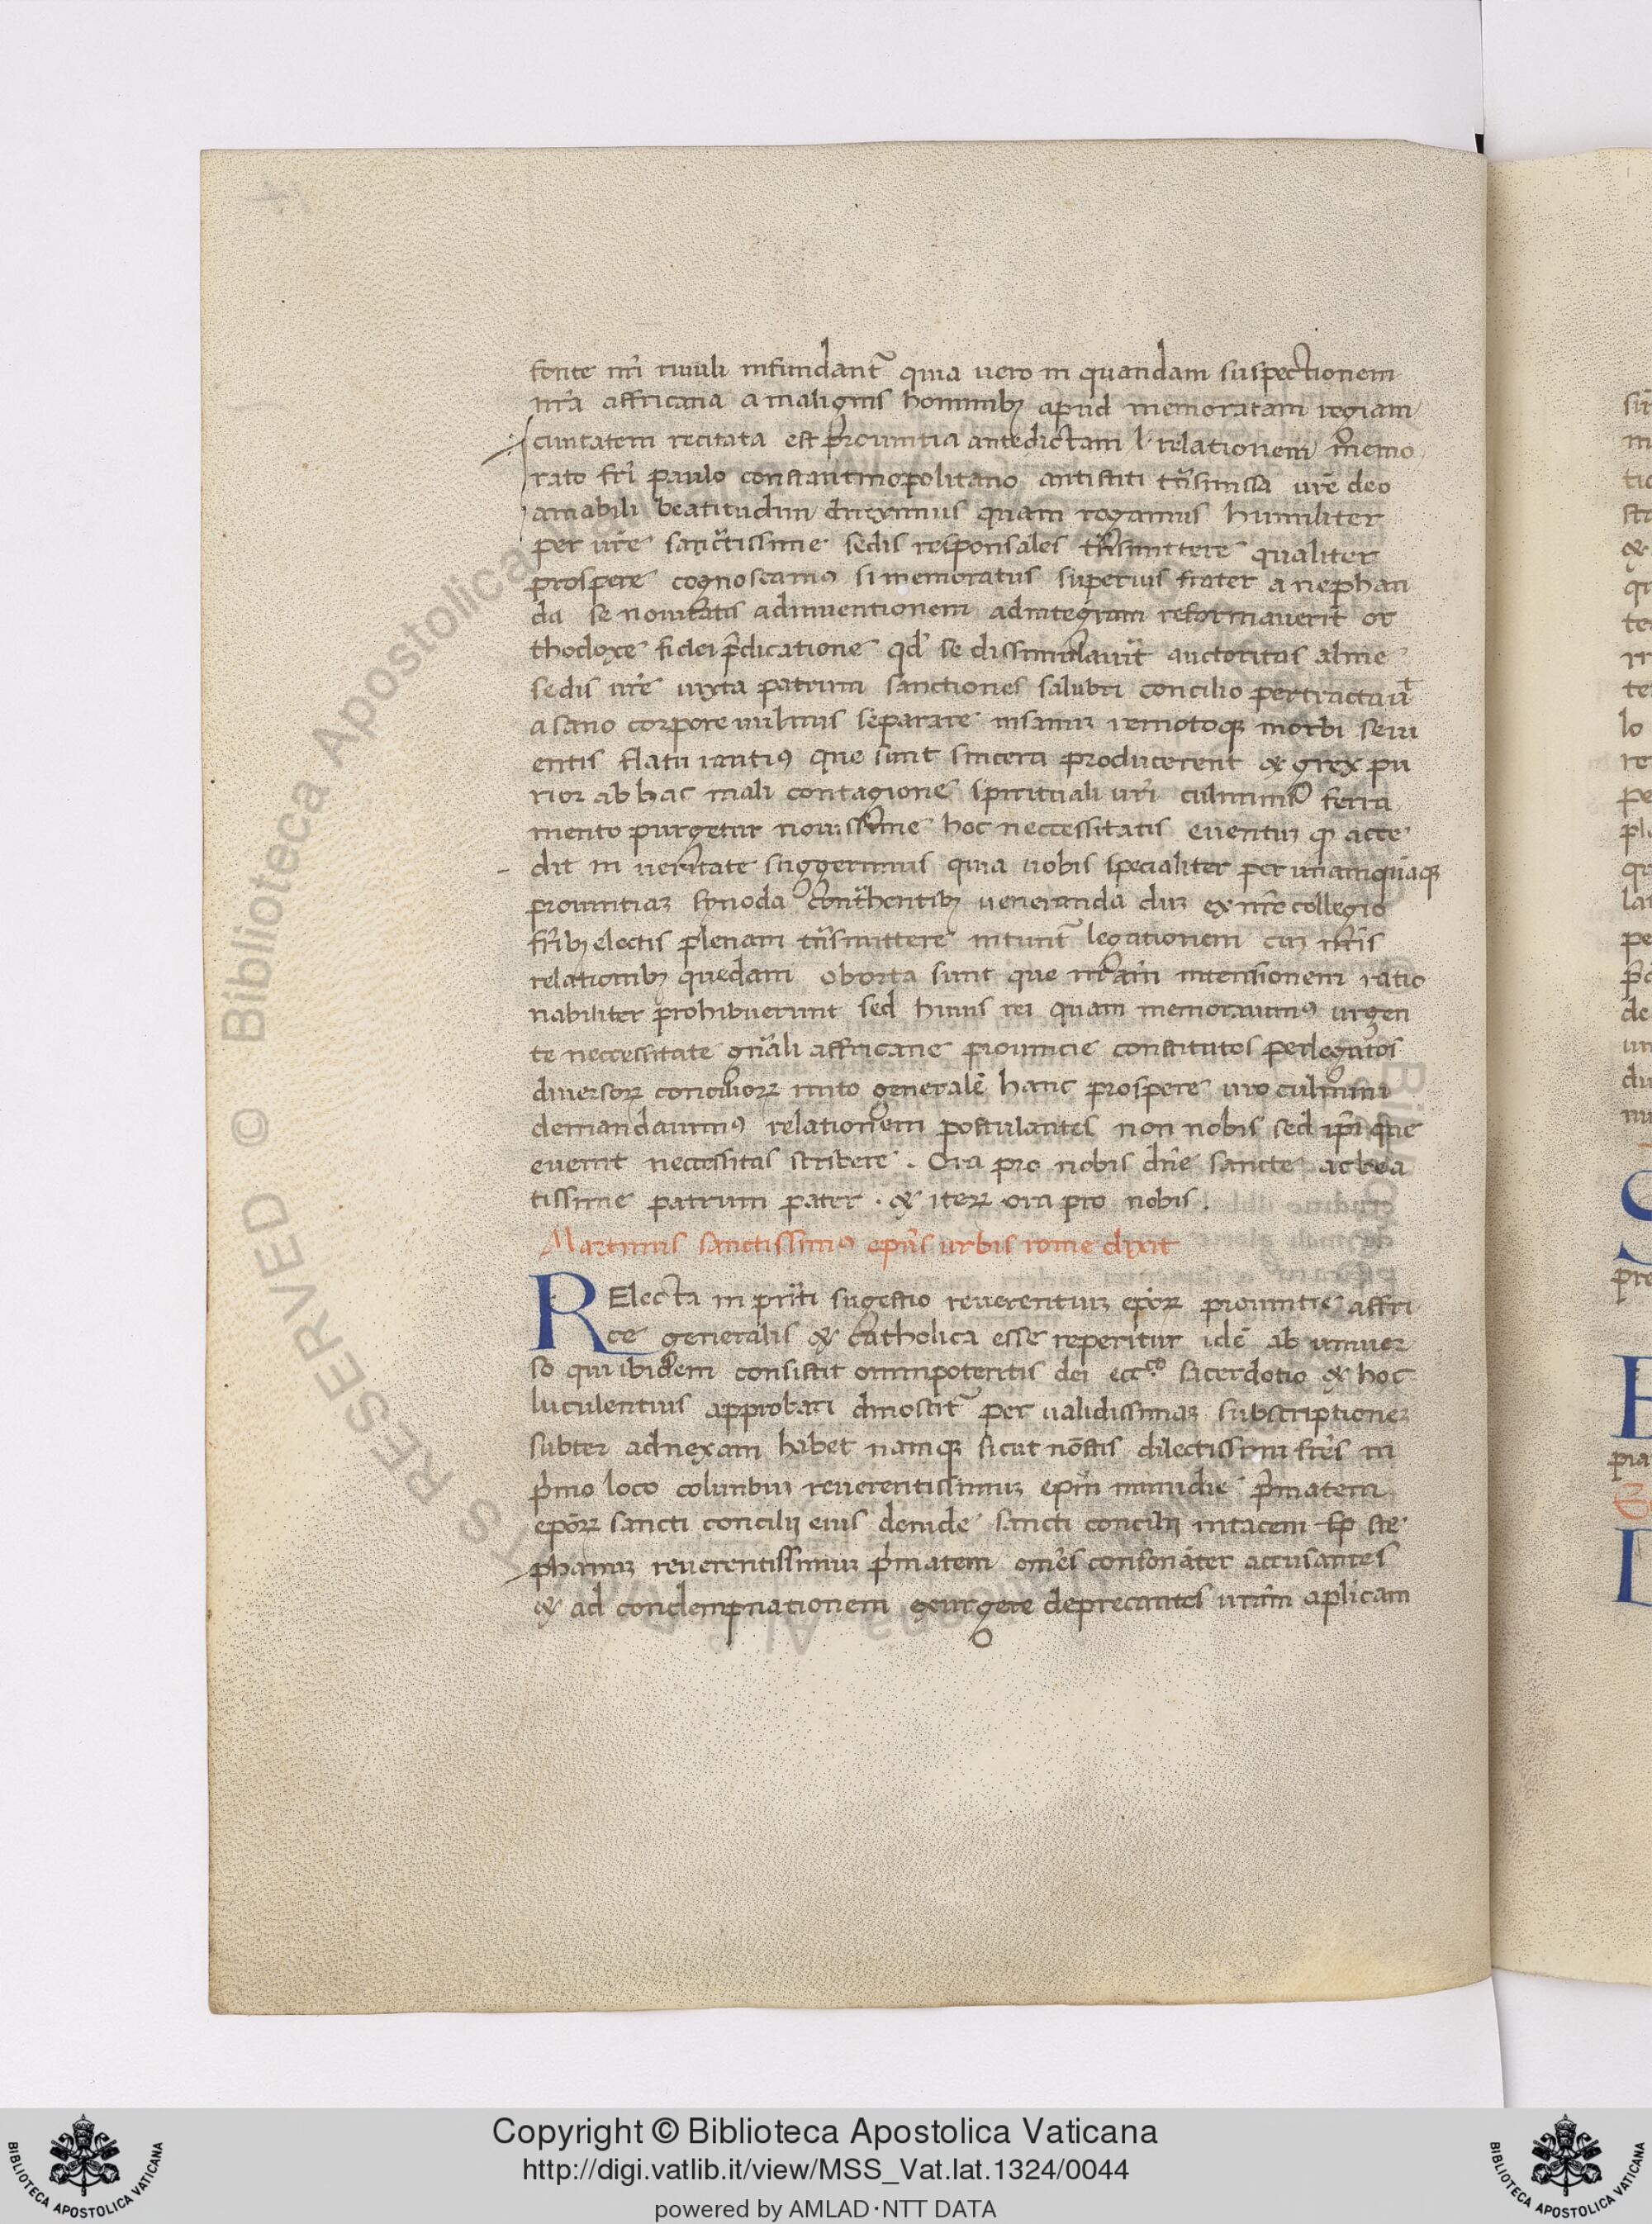 fonte nr̄i riuuli infundant᷑ quia uero in quandam suspectionem
nr̄a affricana a malignis hominibꝫ apud memoratam regiam
ciuitatem recitata est prouintia antedictam l· relationem memo
rato frī paulo constantinopolitano antistiti trāsmissa ur̄e deo
amabili beatitudini direximus quam rogamus humiliter
per ur̄e sanctissime sedis responsales trāsmittere qualiter
prospere cognoscamꝰ si memoratus superius frater a nephan
da se nouitatis adinuentionem ad integram reformauerit or
thodoxe fidei p̄dicatione qd' se dissimulauit auctoritas alme
sedis ur̄e iuxta patrum sanctiones salubri concilio pertractau͛t
a sano corpore uulnus separare insanuꝫ remotoqꝫ morbi seui
entis flatu cautiꝰ que sunt sincera producerent & grex pu
rior ab hac mali contagione spirituali ur̄i culminis ferra
mento purgetur nouissime hoc neccessitatis euentuꝫ qꝫ acce
dit in ueritate suggerimus quia uobis specialiter per unamquāqꝫ
prouintiaꝫ synoda contrahentibꝫ ueneranda duꝫ ex nr̄o collegio
fr̄ibꝫ electis plenam trāsmittere nitunt᷑ legationem cuꝫ nr̄is
relationibꝫ quedam oborta sunt que nr̄am intentionem ratio
nabiliter prohibuerunt sed huius rei quam memorauimꝰ urgen
te neccessitate gn̄ali affricane prouincie constitutos perlegatos
diuersorꝝ conciliorꝝ inito generalē hanc prospere uro culmini
demandauimꝰ relationem postulantes non nobis sed ip̄i que
euenit neccessitas scribere . Ora pro nobis dn̄e sancte ac bea
tissime patrum pater . & iterꝝ ora pro nobis .
Martinus sanctissimꝰ ep̄us urbis rome dixit
RElecta in pn̄ti sugestio reuerentiuꝫ ep̄orꝝ prouintie affri
ce generalis & catholica esse reperitur idē ab uniuer
so qui ibidem consistit omnipotentis dei ecc͞o sacerdotio & hoc
luculentius approbari dinoscit᷑ per ualidissimaꝫ subscriptioneꝫ
subter adnexam habet namqꝫ sicut nōstis dilectissimi fr̄es in
p̄mo loco columbuꝫ reuerentissimuꝫ ep̄m numidie p̄matem
ep̄orꝝ sancti concilii eius deinde sancti concilii intacem ste
phanuꝫ reuerentissimuꝫ p̄matem om̄es consonāter accusantes
& ad condempnationem exurgere deprecantes uram̄ aplicam
Copyright © Biblioteca Apostolica Vaticana
http://digi.vatlib.it/view/MSS_Vat.lat.1324/0044
powered by AMLAD·NTT DATA